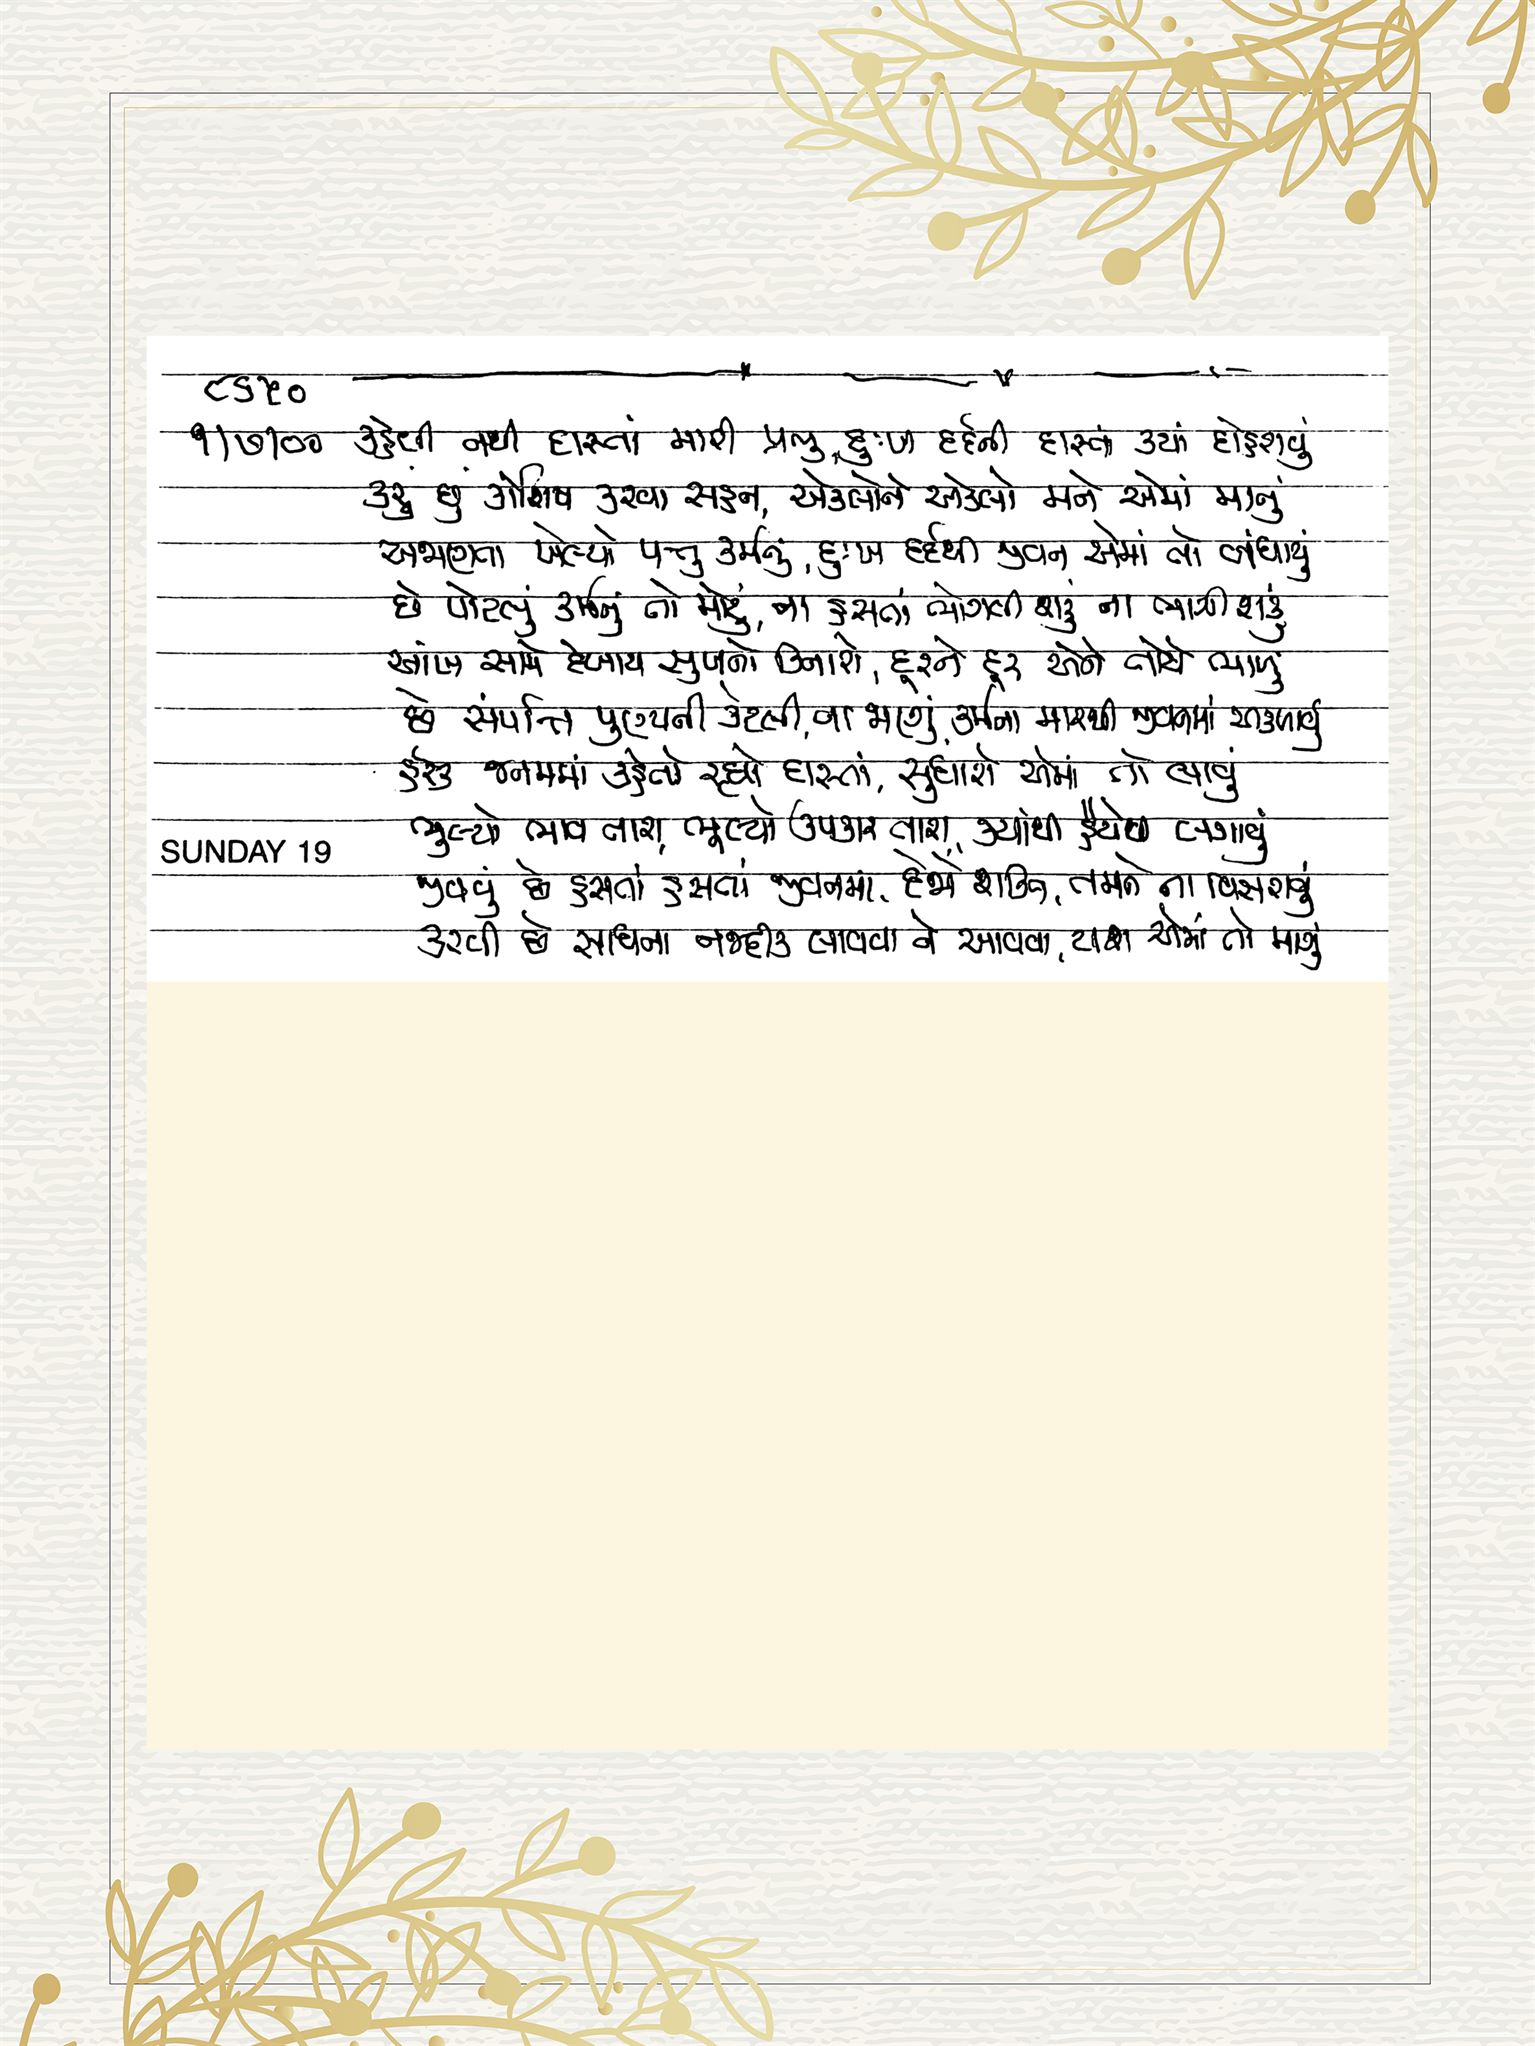 ૮૬૫૦
૧/૭/૦૦ કહેવી નથી દાસ્તાં મારી પ્રભુ, દુઃખ દર્દની દાસ્તાં ક્યાં દોહરાવું
કરું છું કોશિષ કરવા સહન, એકલોને એકલો મને એમાં માનું
અજાણતા ખેલ્યો પત્તુ કર્મનું, દુઃખ દર્દથી જીવન એમાં તો બંધાયું
છે પોટલું કર્મનું તો મોટું, ના હસતાં ભોગવી શકું ના ત્યાગી શકું
આંખ સામે દેખાય સુખનો કિનારો, દૂરને દૂર એને તોયે ભાળું
છે સંપત્તિ પુણ્યની કેટલી, ના જાણું, કર્મના મારથી જીવનમાં અકળાવું
હરેક જનમમાં કહેતો રહ્યો દાસ્તાં, સુધારો એમાં તો લાવું
ભુલ્યો ભાવ તારા, ભૂલ્યો ઉપકાર તારા, ક્યાંથી હૈયેથી લગાવું
SUNDAY 19
જીવવું છે હસતાં હસતાં જીવનમાં, દેજો શક્તિ, તમને ના વિસરાવું
કરવી છે સાધના નજદીક લાવવા ને આવવા, સાથ એમાં તો માગું